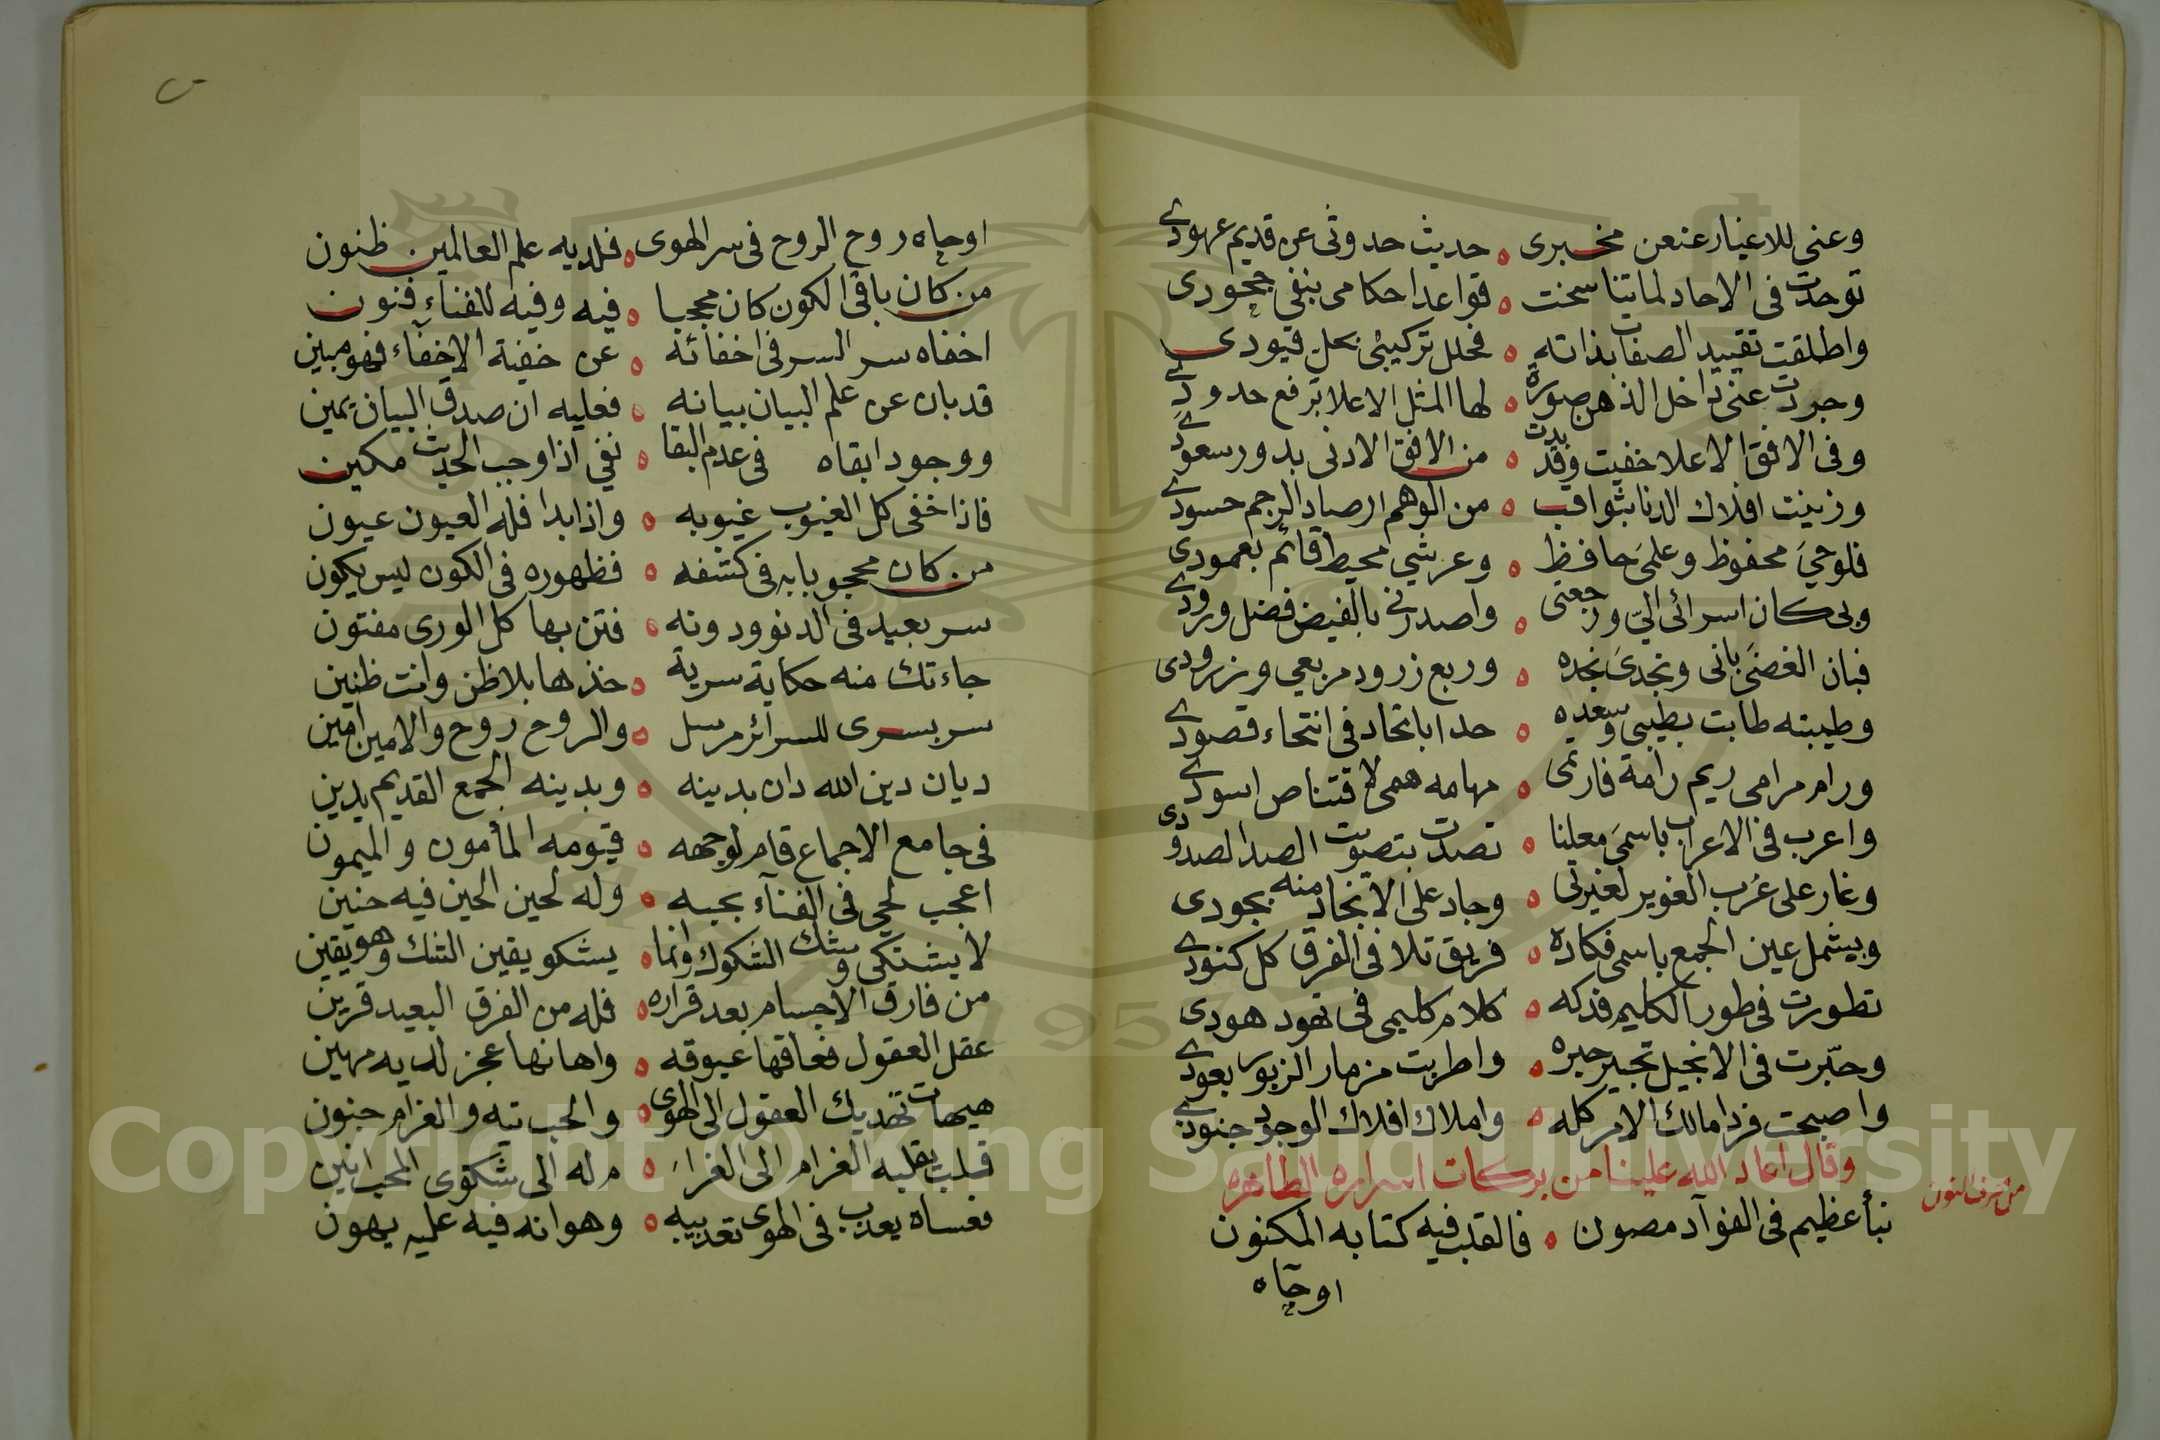 وعنى للاغيار عنعن مخبرى ه حديث حدوثى عن قديم عهودى
توحدت فى الاحاد لما تناسخت ه قواعد احكامى بنفى جحودى
واطلقت تقييد الصفات بذاته ه فحلل تركيبى بحل قيودى
وجردت عنى داخل الذهن صورة ه لها المثل الاعلا برفع حدودى
وفى الافق الاعلا خفيت وقد بدت ه من الافق الادنى بدور سعودى
وزينت افلاك الدنا بثواقب ه من الوهم ارصاد الرجم حسودى
فلوحى محفوظ وعلمى حافظ ه وعرشى محيط قائم بعمودى
وبى كان اسرائى الىّ ورجعتى ه واصدرنى بالفيض فضل ورودى
فبان الغضى بانى ونجدى نجده ه وربع زرود مربعى وزرودى
وطيبته طابت بطيبى وسعده ه حدا باتحاد فى انتحاء قصودى
ورام مرامى ريم رامة فارتمى ه مهامه همى لاقتناص اسودى
واعرب فى الاعراب باسمى معلنا ه تصدت بتصويت الصدا لصدودى
وغار على عُرب الغوير لغيرتى ه وجاد على الانجاد منه بجودى
ويشمل عين الجمع باسمى فكاده ه فريق تلا فى الفرق كل كنودى
تطورت فى طور الكليم فدكه ه كلام كليمى فى تهود هودى
وحبّرت فى الانجيل تحبير حبره ه واطربت مزمار الزبور بعودى
واصبحت فردا مالك الامر كله ه واملاك افلاك الوجود جنودى
وقال اعاد الله علينا من بركات اسراره الطاهره
من حرف النون
نبأ عظيم فى الفوآد مصون ه فالقلب فيه كتابه المكنون
اوحاه
اوحاه روح الروح فى سر الهوى ه فلديه علم العالمين ظنون
من كان باقى الكون كان محجبا ه فيه وفيه للفناء فنون
اخفاه سر السر فى اخفائه ه عن خفية الاخفاء فهو مبين
قد بان عن علم البيان بيانه ه فعليه ان صدق البيان يمين
ووجود ابقاه فى عدم البقا ه نفى اذا وجب الحديث مكين
فاذا خفى كل الغيوب غيوبه ه واذا بدا فله العيون عيون
من كان محجوبا به فى كشفه ه فظهوره فى الكون ليس يكون
سر بعيد فى الدنو ودونه ه فتن بها كل الورى مفتون
جاءتك منه حكاية سرية ه خذها بلا ظن وانت ظنين
سر بسرى للسرائر مرسل ه والروح روح والامين امين
ديان دين الله دان بدينه ه وبدينه الجمع القديم يدين
فى جامع الاجماع قام لوجهه ه قيومه المأمون والميمون
اعجب لحى فى الفنآء بحبه ه وله لحين الحين فيه حنين
لا يشتكى وشك الشكوك وانما ه يشكو يقين الشك وهو يقين
من فارق الاجسام بعد قراره ه فله من الفرق البعيد قرين
عقل العقول فعاقها عيوقه ه واهانها عجز لديه مهين
هيهات تهديك العقول الى الهوى ه والحب تيه والغرام جنون
قلب يقلبه الغرام الى الغرا ه م له الى شكوى المحب انين
فعساه يعذب فى الهوى تعذيبه ه وهوانه فيه عليه يهون